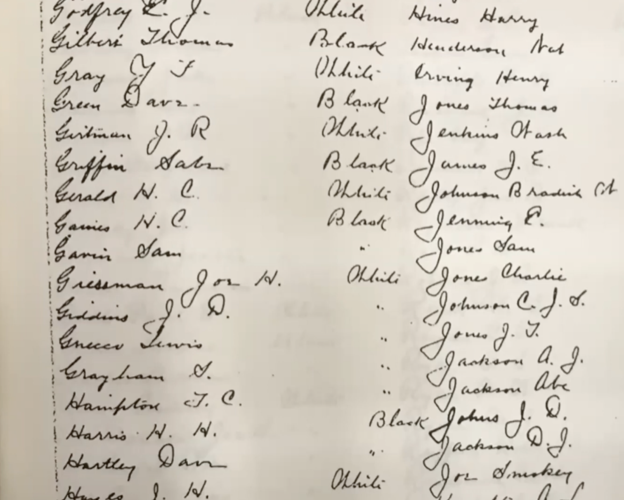 Godfrey E. J. White Hines Harry
Gilbert Thomas Black Henderson Nat
Gray J F White Irving Henry
Green Dave Black Jones Thomas
J. R White Jenkins Wash
Griffin Gabe Black James J. E.
Gerald H. C. White Johnson
Gaines H. C. Black Jenning E.
Gavin Sam " Jones Sam
Giessman Joe H. White Jones Charlie
Giddins J. D. " Johnson C. J. S.
Gnecco Lewis " Jones J. T.
Grayham S. " Jackson A. J.
Hampton T. C. " Jackson Abe
Harris H. H. Black Johns J. D.
Hartley Dave " Jackson D. J.
Hayes J. H. White Joe Smokey